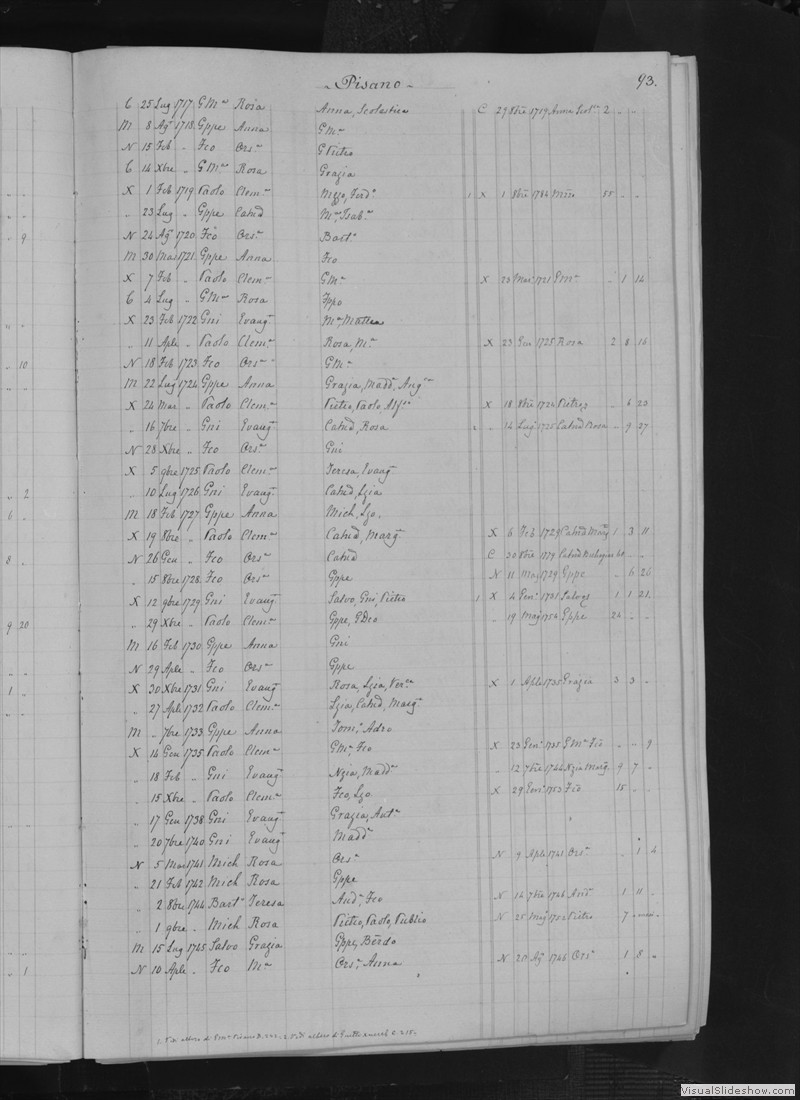 Pisano
93.
C 25 Lug 1717 GMa Rosa Anna, Scolastica C 29 8bre 1719 Anna Scola 2 " "
M 8 Ago 1718 Gppe Anna GMa
N 15 Feb " Fco Orsa G Pietro
C 14 Xbre " GMa Rosa Grazia
X 1 Feb 1719 Paolo Clema Ferdo 1 X 1 8bre 1784 55 " "
" 23 Lug " Gppe Catnd Ma, Isaba
N 24 Ago 1720 Fco Orsa Barto
M 30 Mar 1721 Gppe Anna Fco
X 7 Feb " Paolo Clema GMa X 1721 GMa " 1 14
C 4 Lug " GMa Rosa Fppo
X 23 Feb 1722 Gni Evanga Ma, Mattea
" 11 Aple " Paolo Clema Rosa, Ma X 23 Gen 1725 Rosa 2 8 16
N 18 Feb 1723 Fco Orsa GMa
M 22 Lug 1724 Gppe Anna Grazia, Madda, Anga
X 24 Mar " Paolo Clema Pietro, Paolo, Alfso X 18 8bre 1724 " 6 23
" 16 7bre " Gni Evanga Catnd, Rosa 2 " 14 Lug 1725 Catnd Rosa " 9 27
N 28 Xbre " Fco Orsa Gni
X 5 9bre 1725 Paolo Clema Teresa, Evanga
" 10 Lug 1726 Gni Evanga Catnd, Lzia
M 18 Feb 1727 Gppe Anna Mich, Lzo.
X 19 8bre " Paolo Clema Catnd, Marga X 6 Feb 1729 Catnd Marga 1 3 11
N 26 Gen " Fco Orsa Catnd C 30 8bre 1779 Catnd " "
" 15 8bre 1728 Fco Orsa Gppe N 11 Mag 1729 Gppe " 6 26
X 12 9bre 1729 Gni Evanga Salvo, Gni, Pietro 1 X 4 Gen 1731 1 1 21
" 29 Xbre " Paolo Clema Gppe, GDeo " 19 Mag 1754 Gppe 24 " "
M 16 Feb 1730 Gppe Anna Gni
N 29 Aple " Fco Orsa Gppe
X 30 Xbre 1731 Gni Evanga Rosa, Lzia, Vera X 1 Aple 1735 Grazia 3 3 "
" 27 Aple 1732 Paolo Clema Lzia, Catnd, Marga
M " 7bre 1733 Gppe Anna Toma, Adeo
X 14 Gen 1735 Paolo Clema GMa, Fco X 23 Gen 1735 GMa Fco " " 9
" 18 Feb " Gni Evanga Nzia, Madda " 12 7bre 1744 Nzia Marga 9 7 "
" 15 Xbre " Paolo Clema Fco, Lzo X 29 Gen 1753 Fco 15 " "
" 17 Gen 1738 Gni Evanga Grazia, Anta
" 20 7bre 1740 Gni Evanga Madda
N 5 Mar 1741 Mich Rosa Orsa N 9 Aple 1741 Orsa " 1 4
" 21 Feb 1742 Mich Rosa Gppe
" 2 8bre 1744 Barto Teresa Anda, Fco N 14 7bre 1746 Anda 1 11 "
" 1 9bre " Mich Rosa Pietro, Paolo, Publio N 25 Mag Pietro 7
M 15 Lug 1745 Salvo Grazia Gppe, Berdo
N 10 Aple " Fco Ma Orsa, Anna N 20 Ago 1746 Orsa 1 8 "
9
" 10
" 2
6 "
8 "
9 20
1 "
" 1
VisualSlideshow.com